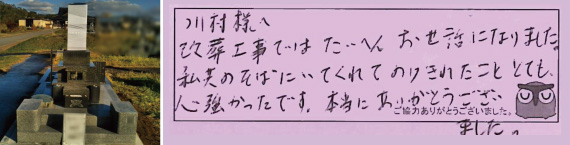 川村様へ
改葬工事ではたいへんお世話になりました。
私共のそばにいてくれてのりきれたこととても、
心強かったです。本当にありがとうござい
ご協力ありがとうございました。
ました。